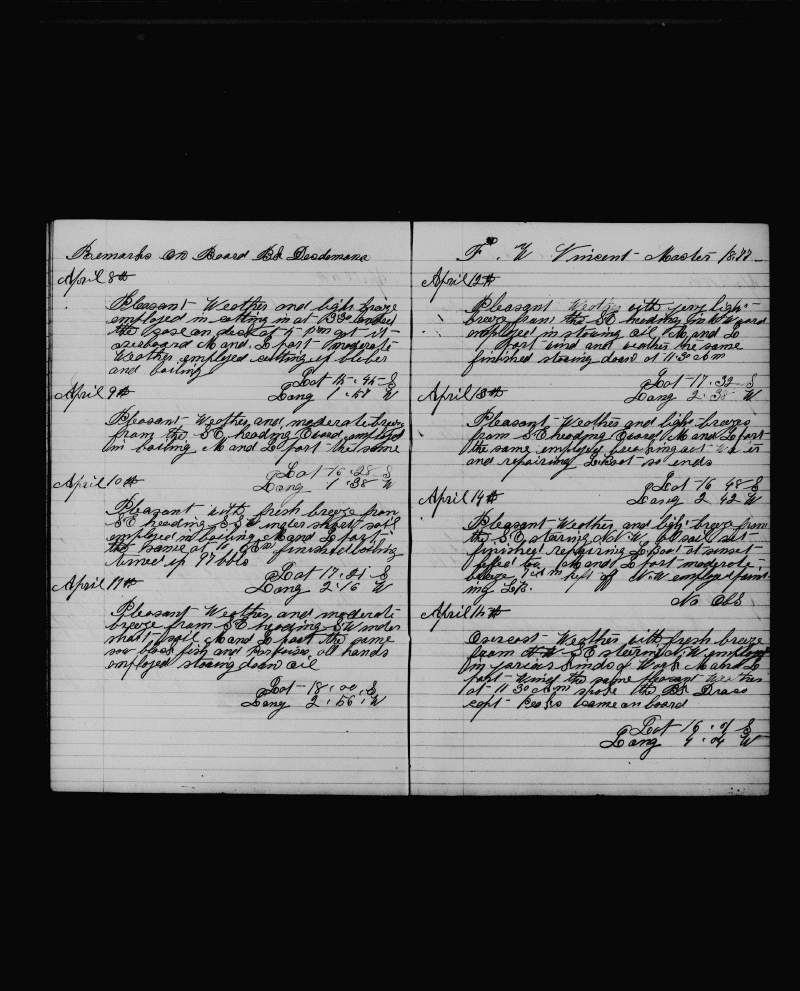 Remarks on Board Bk Desdemona
April 8th
Pleasant Weather and light breeze
employed in cutting in at
the case on deck at 5 pm got it
overboard M and L part moderate
Weather employed cutting up bluber
and boiling
Lat 15.45 S
Long 1.57 W
April 9th
Pleasant Weather and moderate breeze
from the SE heading Eward employed
in boiling M and L part the same
Lat 16.28 S
Long 1.38 W
April 10th
Pleasant with fresh breeze from
SE heading SSW under short sail
employed in boiling M and L part
the same at finished boiling
turned up 97 bbls
Lat 17.21 S
Long 2.16 W
April 11th
Pleasant Weather and moderate
breeze from SE heading SW under
short sail M and L part the same
saw black fish and Porpoises all hands
employed stowing down oil
Lat 18.00 S
Long 2.56 W
F. W Vincent Master 1877
April 12th
Pleasant Weather with very light
breeze from the SE heading
employed in stowing oil M and L
part wind and weather the same
finished stowing down at 11 30 AM
Lat 17.32 S
Long 2.38 W
April 13th
Pleasant Weather and light breeze
from SE heading Eward M and L part
the same employed breaking out
and repairing L Boat so ends
Lat 16 48 S
Long 2 42 W
April 14th
Pleasant Weather and light breeze from
the SE staring NW all sail set
finished repairing L Boat at sunset
M and L part moderate
breeze kept off NW employed paint
ing LB.
No Obs
April 15th
Overcast Weather with fresh breeze
from SE stering NW employed
in various kinds of Work M and L
part Wind the same pleasant Weather
at 11 30 AM spoke the Bk Draco
capt came on board
Lat 16.01 S
Long 4.04 W